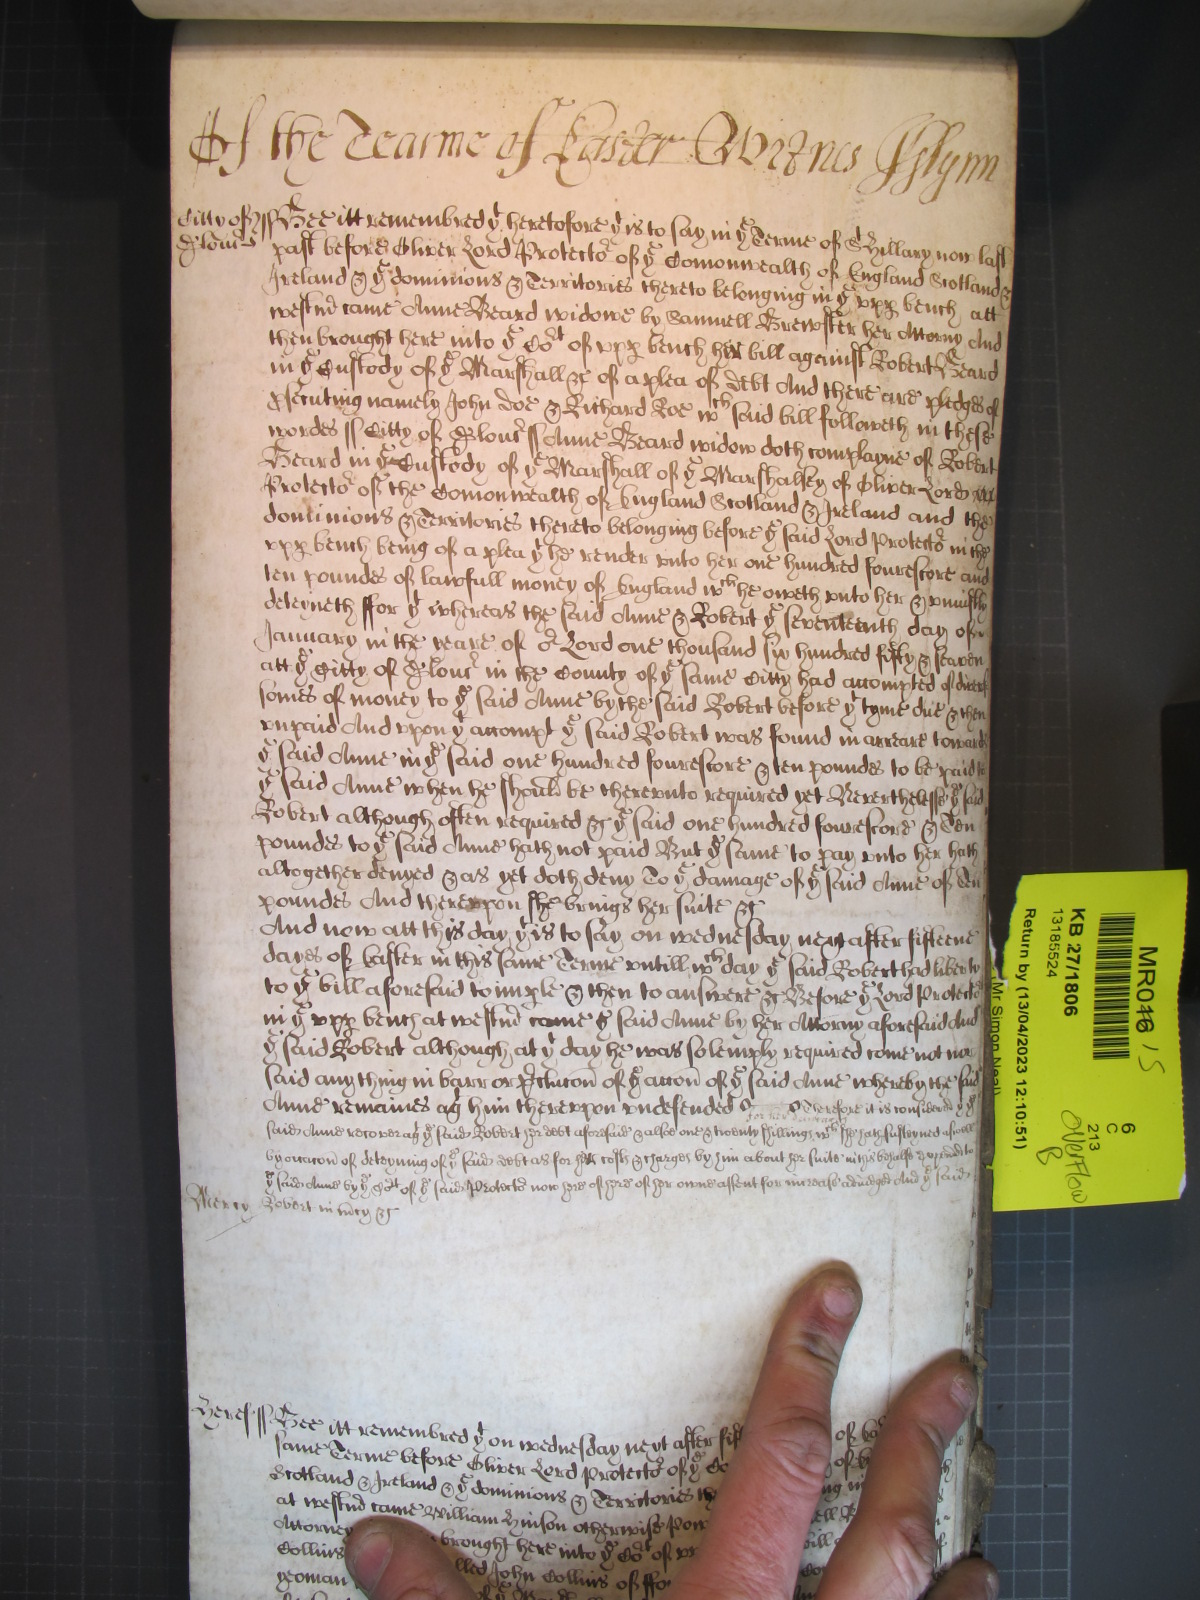 Of the Tearme of Easter Witnes
Citty of ss Bee itt remembred yt heretofore yt is to say in ye Terme of St Hillary now last
Gloucr past before Oliver Lord Protector of ye Comonwealth of England Scotland &
Ireland & ye dominions & Territories thereto belonging in ye upp bench att
westmr came Anne Beard widowe by Samuell Brewster her Attorny And
then brought here into ye Cort of upp bench her bill against Robert Beard
in ye Custody of ye Marshall &c of a plea of debt And there are pledges of
psecuting namely John Doe & Richard Roe wch said bill followeth in these
wordes ss Citty of Gloucr ss Anne Beard widow doth complayne of Robert
Beard in ye Custody of ye Marshall of ye Marshalsey of Oliver Lord
Protector of the Comonwealth of England Scotland & Ireland and the
dominions & Territories thereto belonging before ye said Lord Protector in the
upp bench being of a plea yt he render unto her one hundred fourescore and
ten poundes of lawfull money of England wch he oweth unto her & uniustly
deteyneth ffor yt whereas the said Anne & Robert ye seventeenth day of
January in the yeare of or Lord one thousand six hundred fifty & seaven
att ye Citty of Gloucr in the County of ye same Citty had accompted of divers
somes of money to ye said Anne by the said Robert before yt tyme due & then
unpaid And upon yt accompt ye said Robert was found in arreare towards
ye said Anne in ye said one hundred fourescore & ten poundes to be paid to
ye said Anne when he should be thereunto required yet Neverthelesse ye said
Robert although often required &c ye said one hundred fourescore & Ten
poundes to ye said Anne hath not paid But ye same to pay unto her hath
altogether denyed & as yet doth deny To ye damage of ye said Anne of Ten
poundes And thereupon she brings her suite &c
And now att this day yt is to say on wednesday next after fifteene
dayes of Easter in this same Terme untill wch day ye said Robert had liberty
to ye bill aforesaid to imple & then to answere &c Before ye Lord Protector
in ye upp bench at westmr came ye said Anne by her Attorny aforesaid And
ye said Robert although at yt day he was solemply required come not nor
said any thing in barr or pclucon of ye accon of ye said Anne whereby the said
Anne remaines agt him thereupon undefended Therefore it is considered yt ye
said Anne recover agt ye said Robert her debt aforesaid & alsoe one & twenty shillings wch she hath susteyned aswell
by occacon of deteyning of ye said debt as for her costs & charges by him about her suite in this behalfe expended to
ye said Anne by ye Cort of ye said Protector now here of her owne assent for increase adiudged And ye said
Mercy Robert in mcy &c
Heref ss Bee itt remembred yt on wednesday next after
same Terme before Oliver Lord Protector of ye
Scotland & Ireland & ye dominions & Territories
at westmr came William Hinson otherwise
Attorney brought here into ye Cort of
Collins John Collins of
yeoman
MR046 / 5
KB 27/1806
13185524
Return by (13/04/2023 12:10:51)
Mr Simon Neal)
6
C
213
overflow
B